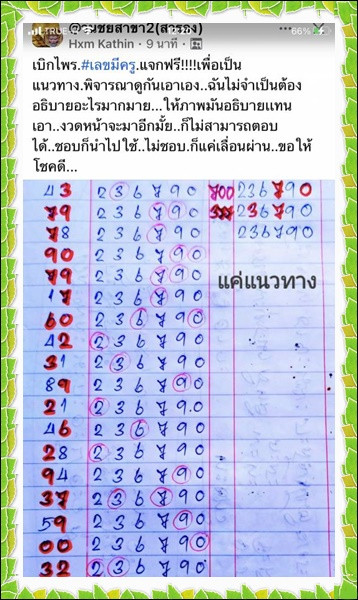 TRUE 66%
@รวยสาขา2(สำรอง)
Hxm Kathin • 9 นาที
เบิกไพร.#เลขมีครู.แจกฟรี!!!!เพื่อเป็น
แนวทาง.พิจารณาดูกันเอาเอง..ฉันไม่จำเป็นต้อง
อธิบายอะไรมากมาย...ให้ภาพมันอธิบายแทน
เอา..งวดหน้าจะมาอีกมั้ย..ก็ไม่สามารถตอบ
ได้..ชอบก็นำไปใช้..ไม่ชอบ.ก็แค่เลื่อนผ่าน..ขอให้
โชคดี...
43 236790 700 236790
79 236790 236790
78 236790 236790
90 236790
79 236790 แค่แนวทาง
17 236790
60 236790
42 236790
31 236790
89 236790
21 23679.0
46 236790
28 236790
94 236790
37 236790
59 236790
00 236790
32 236790